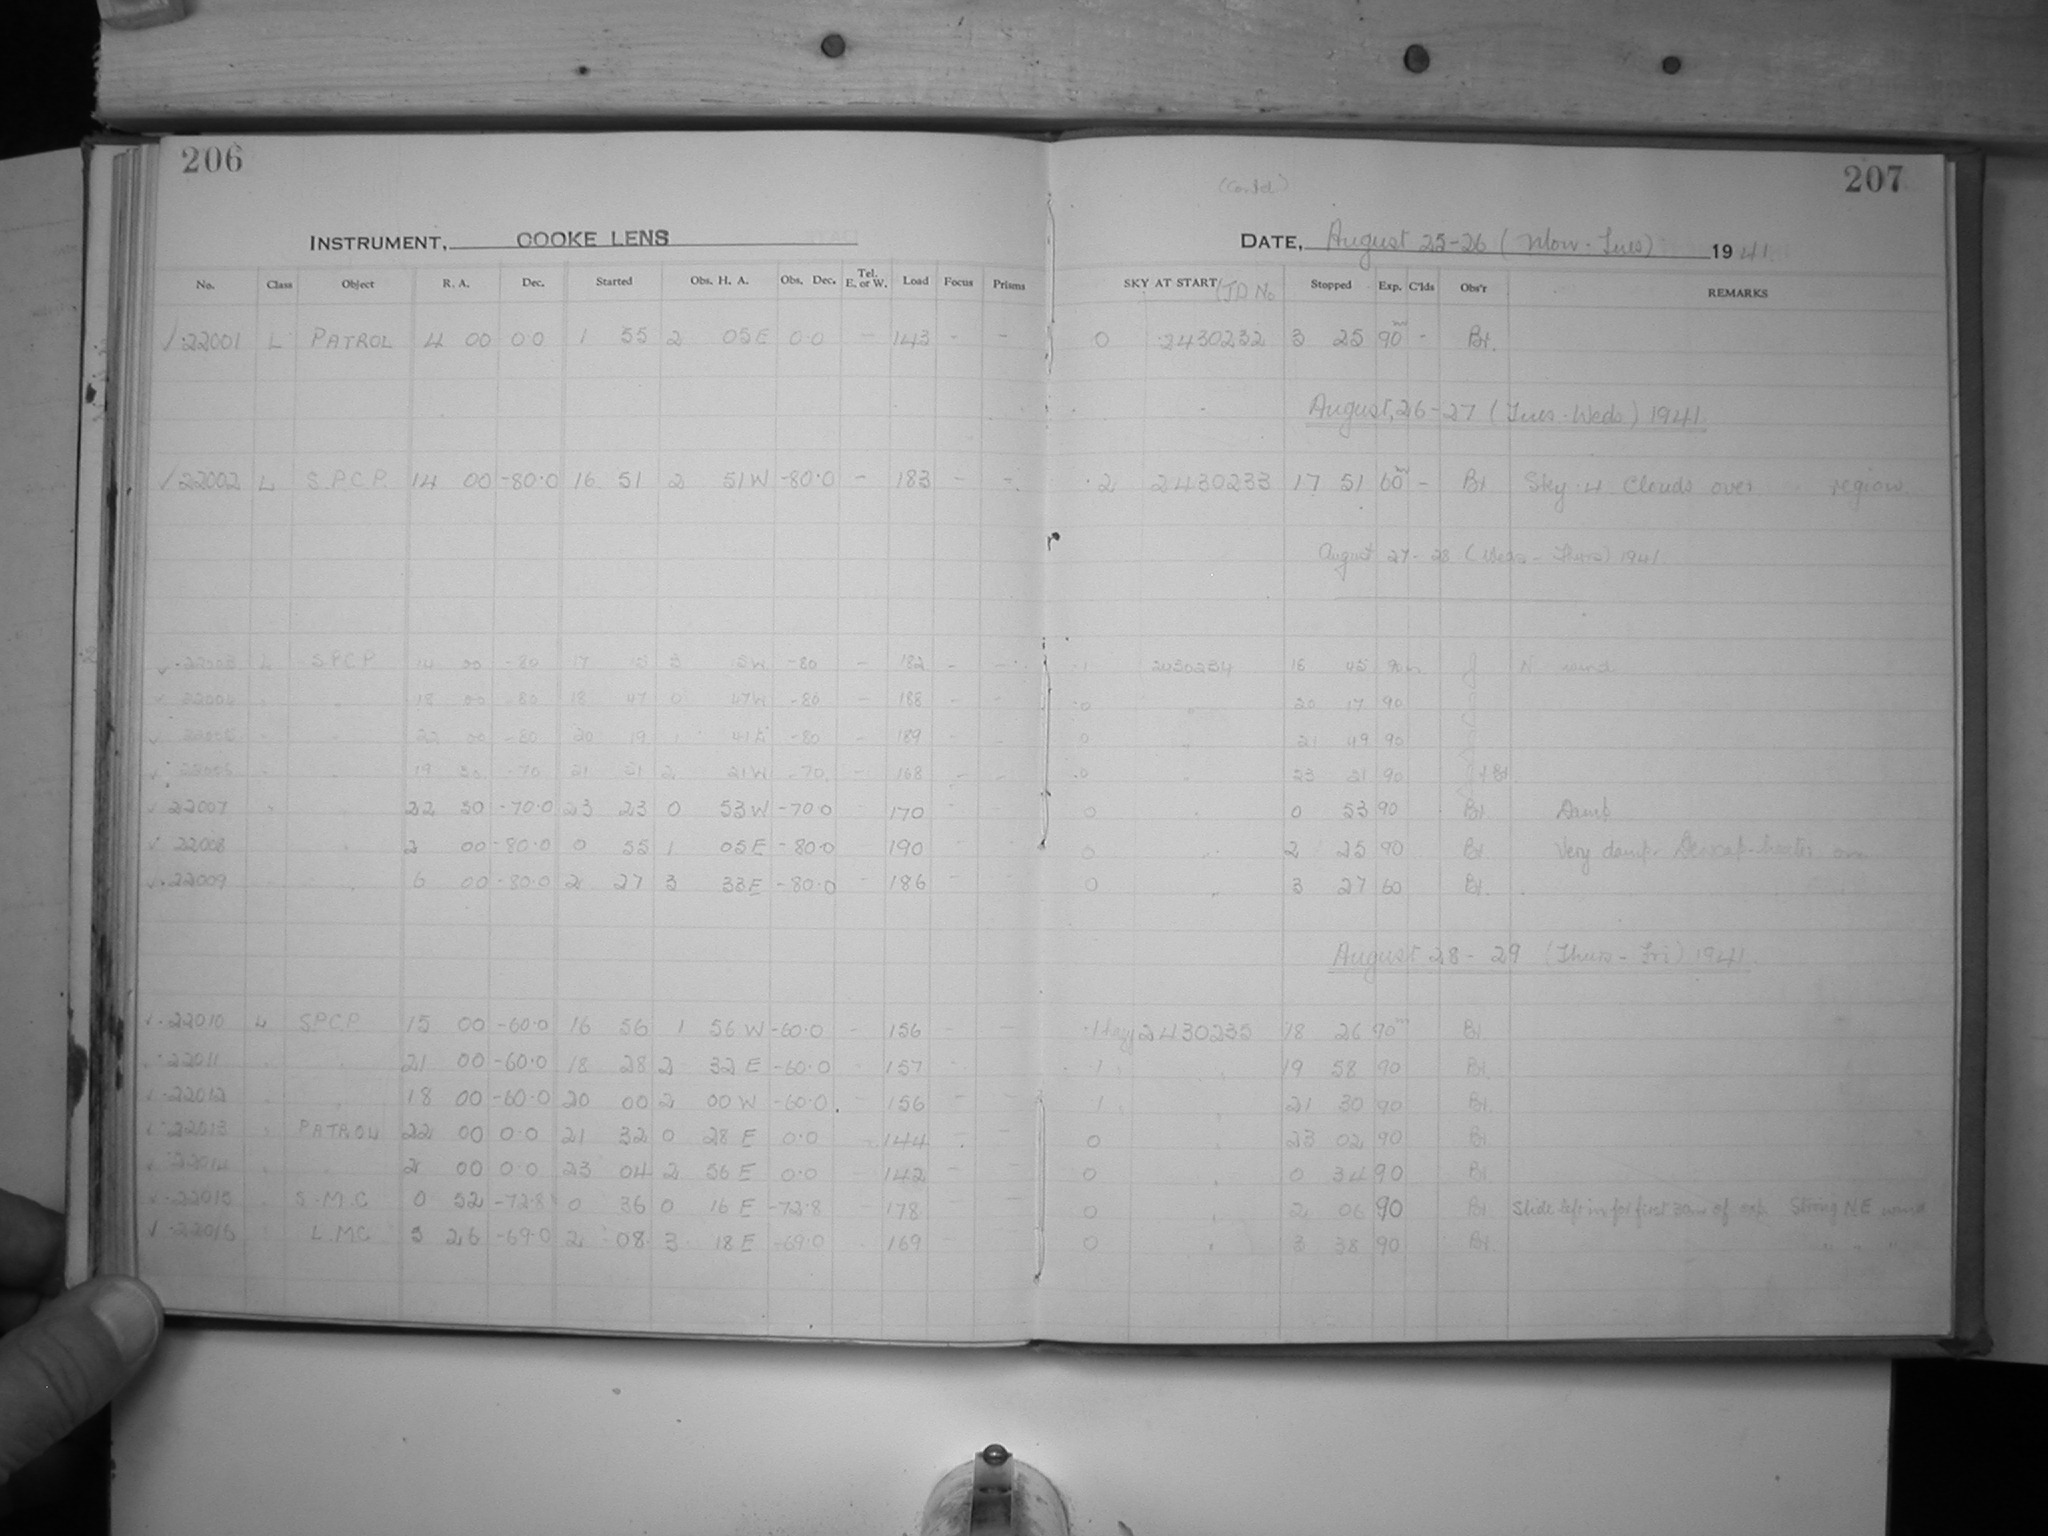 206
INSTRUMENT, COOKE LENS
No. Class Object R. A. Dec. Started Obs. H. A. Obs. Dec. Tel. E. or W. Load Focus Prisms
22001 L PATROL 4 00 0.0 1 55 2 05E 0.0 - 143 - -
22002 L S.P.C.P. 14 00 -80.0 16 51 2 51W -80.0 - 183 - -
22003 L S.P.C.P 14 00 -80 17 15 3 15W -80 - 182 - -
22004 " " 18 00 -80 18 47 0 47W -80 - 188 - -
22005 " " 22 00 -80 20 19 1 41E -80 - 189 - -
22006 " " 19 30 -70 21 51 2 21W -70 - 168 - -
22007 " 22 30 -70.0 23 23 0 53W -70.0 170
22008 " 2 00 -80.0 0 55 1 05E -80.0 190
22009 " 6 00 -80.0 2 27 3 33E -80.0 186
22010 L S.P.C.P 15 00 -60.0 16 56 1 56W -60.0 - 156 - -
22011 " " 21 00 -60.0 18 28 2 32E -60.0 - 157
22012 " " 18 00 -60.0 20 00 2 00W -60.0 - 156 - -
22013 " PATROL 22 00 0.0 21 32 0 28E 0.0 - 144 - -
22014 " " 2 00 0.0 23 04 2 56E 0.0 142 - -
22015 " S.M.C 0 52 -72.8 0 36 0 16E -72.8 178
22016 " L.M.C 5 26 -69.0 2 08 3 18E -69.0 169
207
(Contd)
DATE, August 25-26 (Mon-Tues) 1941
SKY AT START (JD No Stopped Exp. C'lds Obs'r REMARKS
0 2430232 3 25 90m - Bt.
August, 26-27 (Tues-Weds) 1941
2 2430233 17 51 60m - Bt Sky 4 Clouds over region
August 27-28 (Weds-Thurs) 1941
1 2430234 45 90m J N wind
0 " 20 17 90
0 " 21 49 90
0 " 23 21 90 J + Bt
0 " 0 53 90 Bt Damp
0 " 2 25 90 Bt Very damp. Dewcap-heater on
0 " 3 27 60 Bt.
August 28-29 (Thurs-Fri) 1941
1 hazy 2430235 18 26 90m Bt
1 " 19 58 90 Bt.
1 " 21 30 90 Bt.
0 " 23 02 90 Bt
0 " 0 34 90 Bt.
0 " 2 06 90 Bt Slide left in for first 30m of exp. Strong N.E wind
0 " 3 38 90 Bt. " " "